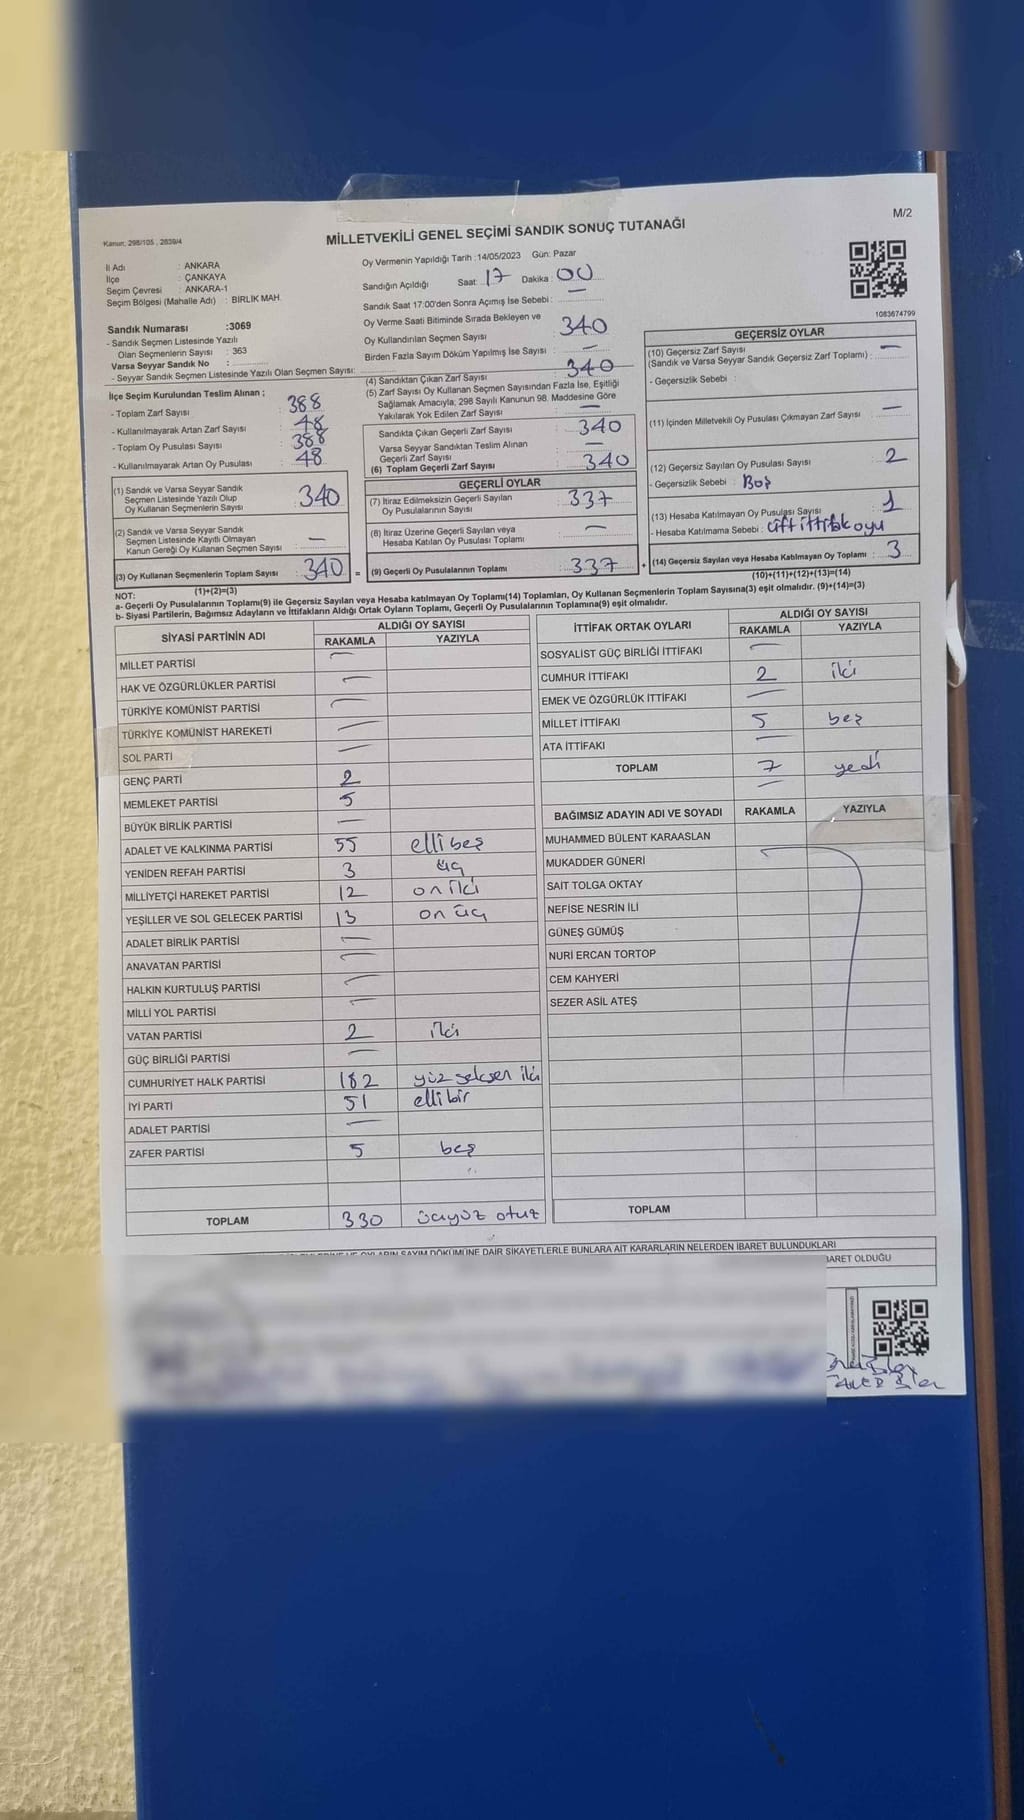 M/2
Kanun; 298/105 , 2839/4
MİLLETVEKİLİ GENEL SEÇİMİ SANDIK SONUÇ TUTANAĞI
İl Adı : ANKARA
İlçe : ÇANKAYA
Seçim Çevresi : ANKARA-1
Seçim Bölgesi (Mahalle Adı) : BİRLİK MAH.
Sandık Numarası :3069
- Sandık Seçmen Listesinde Yazılı
Olan Seçmenlerin Sayısı : 363
Varsa Seyyar Sandık No :
- Seyyar Sandık Seçmen Listesinde Yazılı Olan Seçmen Sayısı:
Oy Vermenin Yapıldığı Tarih :14/05/2023 Gün: Pazar
Sandığın Açıldığı Saat: 17 Dakika: 00
Sandık Saat 17:00'den Sonra Açımış İse Sebebi : —
Oy Verme Saati Bitiminde Sırada Bekleyen ve
Oy Kullandırılan Seçmen Sayısı : 340
Birden Fazla Sayım Döküm Yapılmış İse Sayısı : —
1083674799
İlçe Seçim Kurulundan Teslim Alınan ;
- Toplam Zarf Sayısı : 388
- Kullanılmayarak Artan Zarf Sayısı : 48
- Toplam Oy Pusulası Sayısı : 388
- Kullanılmayarak Artan Oy Pusulası : 48
(1) Sandık ve Varsa Seyyar Sandık
Seçmen Listesinde Yazılı Olup
Oy Kullanan Seçmenlerin Sayısı : 340
(2) Sandık ve Varsa Seyyar Sandık
Seçmen Listesinde Kayıtlı Olmayan
Kanun Gereği Oy Kullanan Seçmen Sayısı : —
(3) Oy Kullanan Seçmenlerin Toplam Sayısı : 340
(1)+(2)=(3)
(4) Sandıktan Çıkan Zarf Sayısı : 340
(5) Zarf Sayısı Oy Kullanan Seçmen Sayısından Fazla İse, Eşitliği
Sağlamak Amacıyla, 298 Sayılı Kanunun 98. Maddesine Göre
Yakılarak Yok Edilen Zarf Sayısı : —
Sandıkta Çıkan Geçerli Zarf Sayısı : 340
Varsa Seyyar Sandıktan Teslim Alınan
Geçerli Zarf Sayısı : —
(6) Toplam Geçerli Zarf Sayısı : 340
GEÇERLİ OYLAR
(7) İtiraz Edilmeksizin Geçerli Sayılan
Oy Pusulalarının Sayısı : 337
(8) İtiraz Üzerine Geçerli Sayılan veya
Hesaba Katılan Oy Pusulası Toplamı : —
= (9) Geçerli Oy Pusulalarının Toplamı : 337 +
GEÇERSİZ OYLAR
(10) Geçersiz Zarf Sayısı
(Sandık ve Varsa Seyyar Sandık Geçersiz Zarf Toplamı) : —
- Geçersizlik Sebebi :
(11) İçinden Milletvekili Oy Pusulası Çıkmayan Zarf Sayısı : —
(12) Geçersiz Sayılan Oy Pusulası Sayısı : 2
- Geçersizlik Sebebi : Boş
(13) Hesaba Katılmayan Oy Pusulası Sayısı : 1
- Hesaba Katılmama Sebebi : Çift ittifak oyu
(14) Geçersiz Sayılan veya Hesaba Katılmayan Oy Toplamı : 3
(10)+(11)+(12)+(13)=(14)
NOT:
a- Geçerli Oy Pusulalarının Toplamı(9) ile Geçersiz Sayılan veya Hesaba katılmayan Oy Toplamı(14) Toplamları, Oy Kullanan Seçmenlerin Toplam Sayısına(3) eşit olmalıdır. (9)+(14)=(3)
b- Siyasi Partilerin, Bağımsız Adayların ve İttifakların Aldığı Ortak Oyların Toplamı, Geçerli Oy Pusulalarının Toplamına(9) eşit olmalıdır.
SİYASİ PARTİNİN ADI ALDIĞI OY SAYISI
RAKAMLA YAZIYLA
MİLLET PARTİSİ —
HAK VE ÖZGÜRLÜKLER PARTİSİ —
TÜRKİYE KOMÜNİST PARTİSİ —
TÜRKİYE KOMÜNİST HAREKETİ —
SOL PARTİ —
GENÇ PARTİ 2
MEMLEKET PARTİSİ 5
BÜYÜK BİRLİK PARTİSİ —
ADALET VE KALKINMA PARTİSİ 55 elli beş
YENİDEN REFAH PARTİSİ 3 üç
MİLLİYETÇİ HAREKET PARTİSİ 12 on iki
YEŞİLLER VE SOL GELECEK PARTİSİ 13 on üç
ADALET BİRLİK PARTİSİ —
ANAVATAN PARTİSİ —
HALKIN KURTULUŞ PARTİSİ —
MİLLİ YOL PARTİSİ —
VATAN PARTİSİ 2 iki
GÜÇ BİRLİĞİ PARTİSİ —
CUMHURİYET HALK PARTİSİ 182 yüz seksen iki
İYİ PARTİ 51 elli bir
ADALET PARTİSİ —
ZAFER PARTİSİ 5 beş
TOPLAM 330 üçyüz otuz
İTTİFAK ORTAK OYLARI ALDIĞI OY SAYISI
RAKAMLA YAZIYLA
SOSYALİST GÜÇ BİRLİĞİ İTTİFAKI —
CUMHUR İTTİFAKI 2 iki
EMEK VE ÖZGÜRLÜK İTTİFAKI —
MİLLET İTTİFAKI 5 beş
ATA İTTİFAKI —
TOPLAM 7 yedi
BAĞIMSIZ ADAYIN ADI VE SOYADI RAKAMLA YAZIYLA
MUHAMMED BÜLENT KARAASLAN
MUKADDER GÜNERİ
SAİT TOLGA OKTAY
NEFİSE NESRİN İLİ
GÜNEŞ GÜMÜŞ
NURİ ERCAN TORTOP
CEM KAHYERİ
SEZER ASİL ATEŞ
TOPLAM
SAYIM DÖKÜMÜNE DAİR ŞİKAYETLERLE BUNLARA AİT KARARLARIN NELERDEN İBARET BULUNDUKLARI
İBARET OLDUĞU